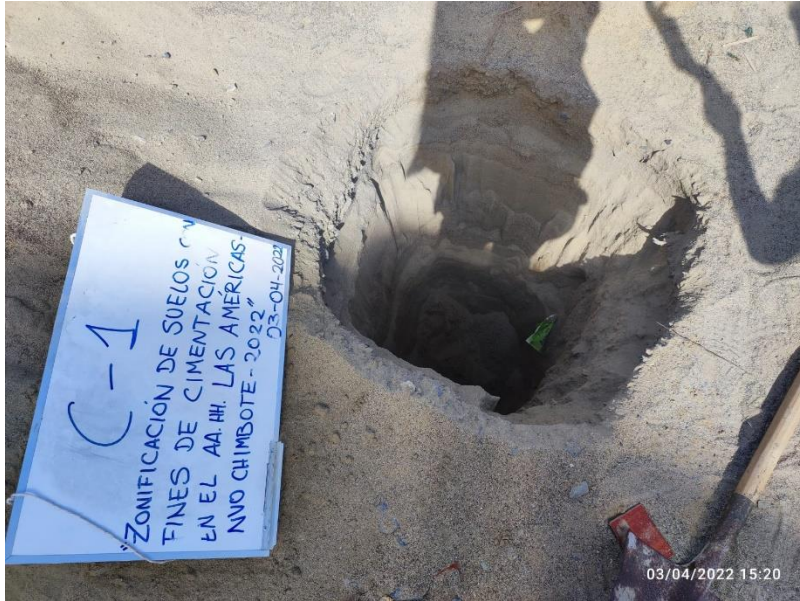 C-1
"ZONIFICACIÓN DE SUELOS CON
FINES DE CIMENTACIÓN
EN EL AA.HH. LAS AMÉRICAS-
NVO CHIMBOTE-2022"
03-04-2022
03/04/2022 15:20